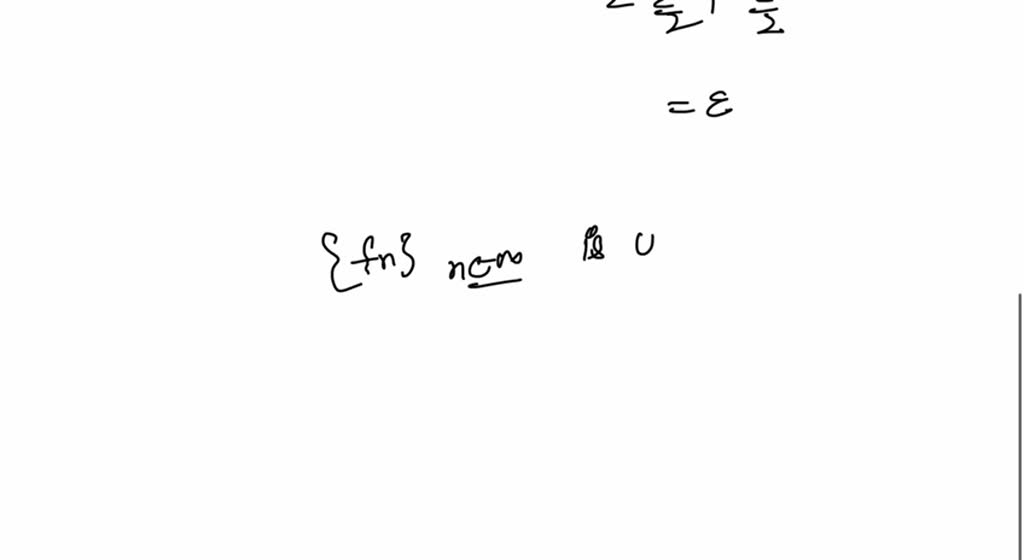 < ε/2 + ε/2
= ε
{fn} n∈ℕ is U